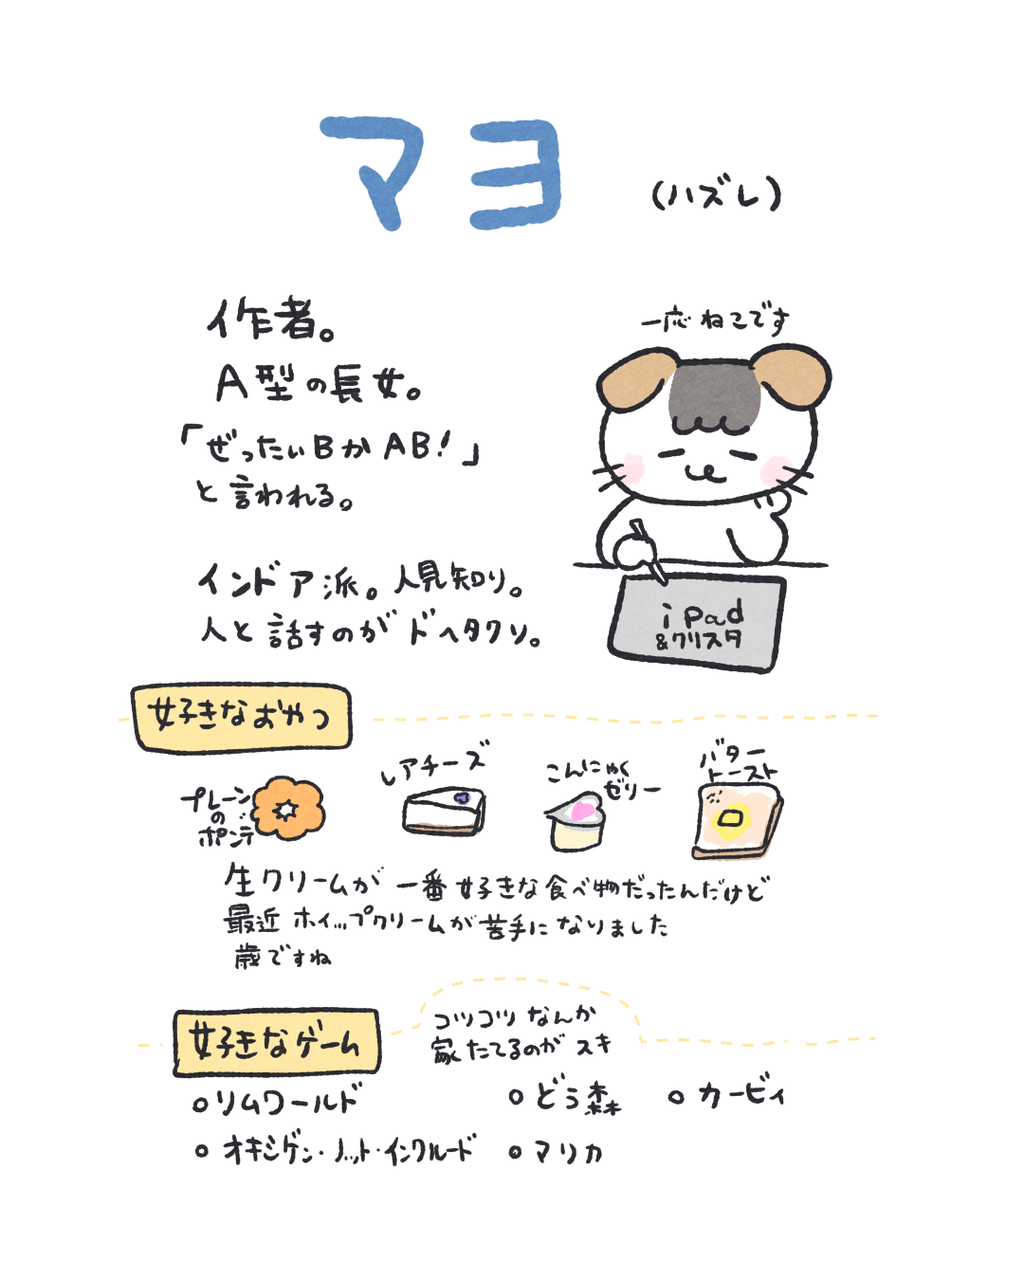 マヨ
(ハズレ)
作者。
A型の長女。
「ぜったいBかAB!」
と言われる。
インドア派。人見知り。
人と話すのがドヘタクソ。
一応ねこです
iPad
&クリスタ
好きなおやつ
プレーン
の
ポンデ
レアチーズ
こんにゃく
ゼリー
バター
トースト
生クリームが一番好きな食べ物だったんだけど
最近ホイップクリームが苦手になりました
歳ですね
好きなゲーム
コツコツなんか
家たてるのがスキ
○リムワールド
○どう森
○カービィ
○オキシゲン・ノット・インクルード
○マリカ